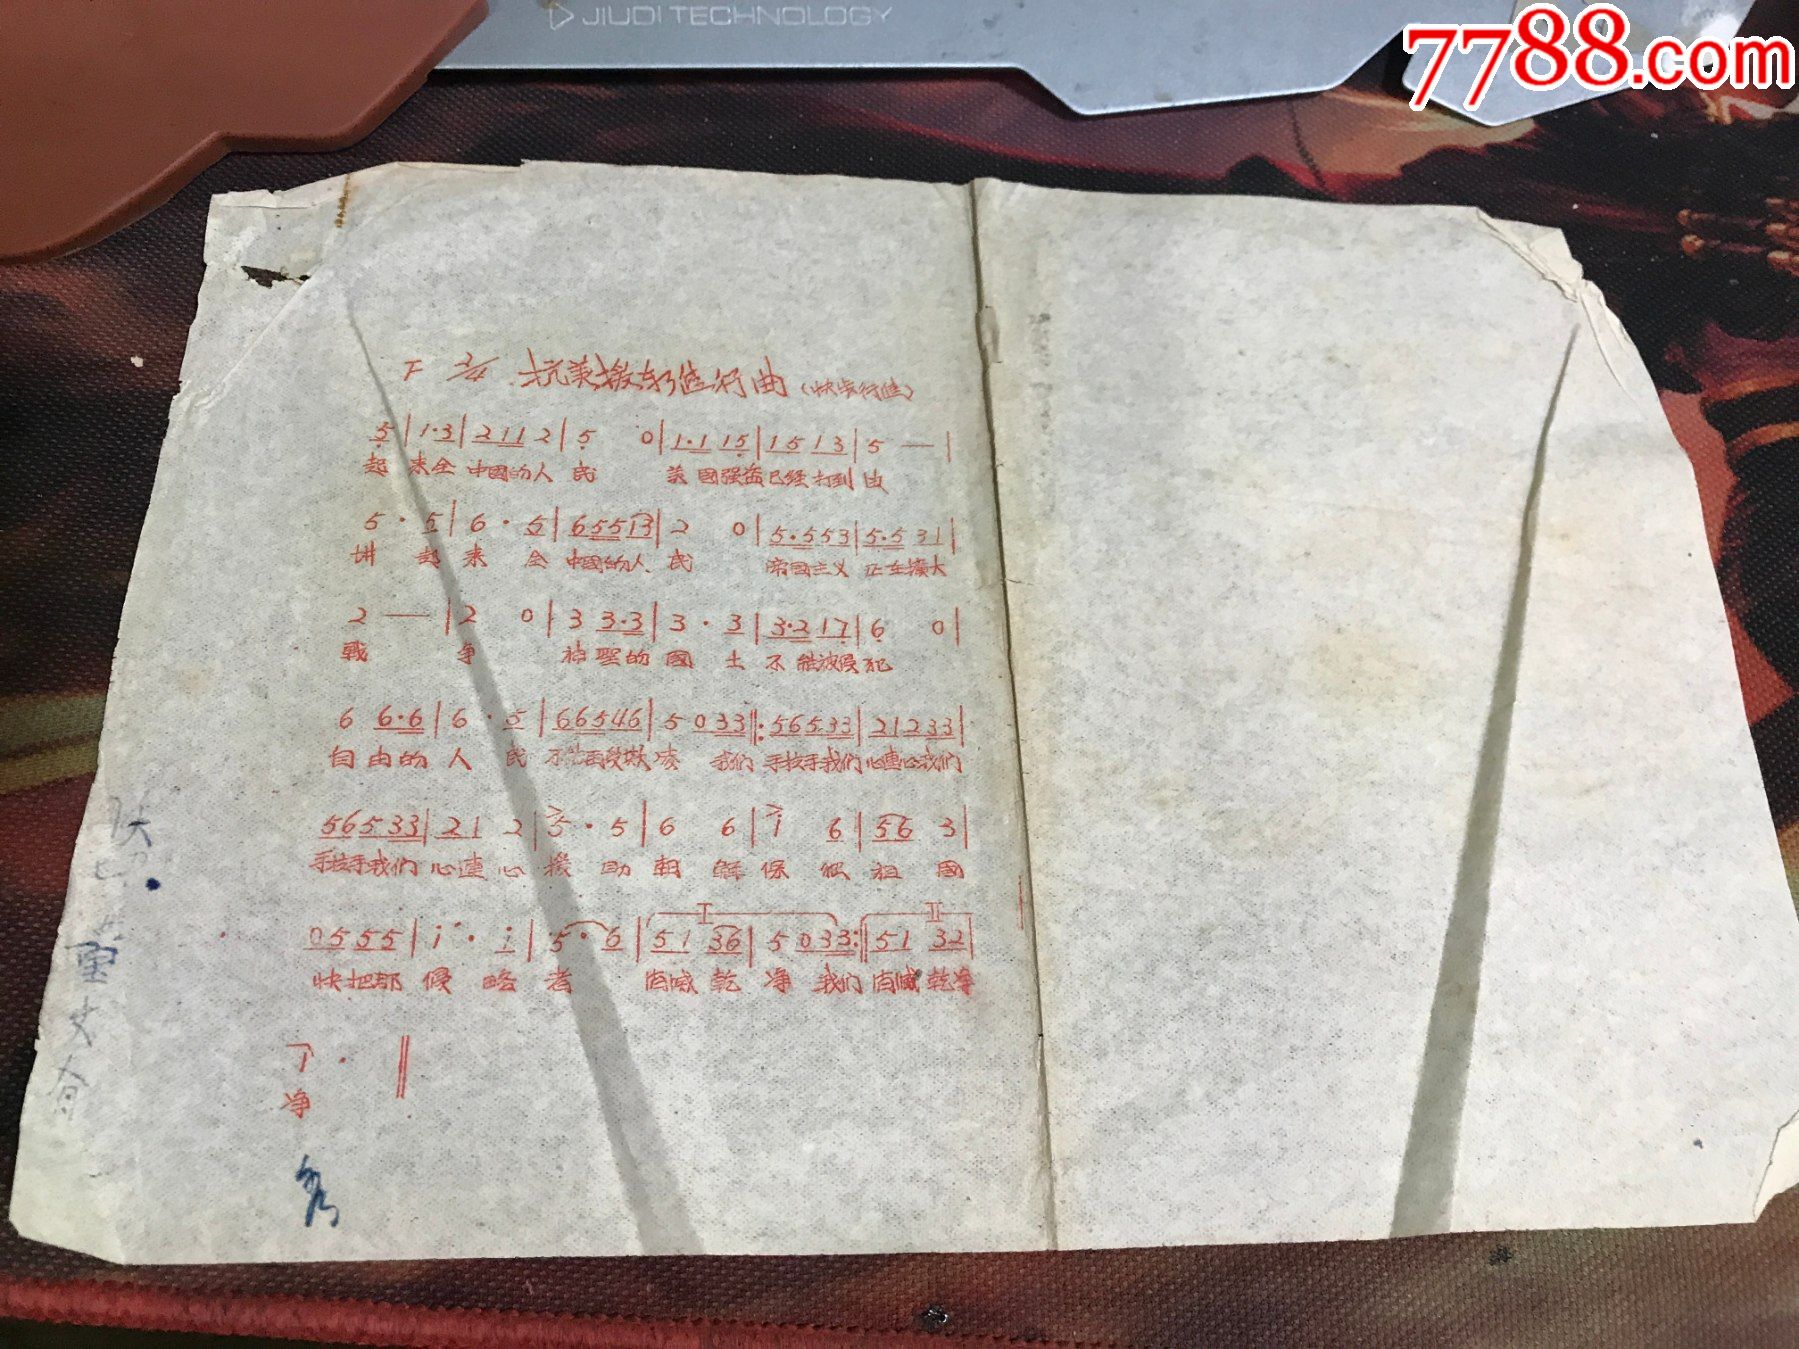 JIUDI TECHNOLOGY
7788.com
F 2/4 抗美援朝進行曲(快步行進)
5 | 1·3 | 2 1 1 2 | 5 0 | 1·1 1 5 | 1 5 1 3 | 5 — |
起 來全 中國的人 民 美 國强盗已經打到 边
5 · 5 | 6 · 5 | 6 5 5 1 3 | 2 0 | 5·5 5 3 | 5·5 3 1 |
起 來 全 中國的人 民 帝國主义 正在擴大
2 — | 2 0 | 3 3·3 | 3 · 3 | 3·2 1 7 | 6 0 |
戰 争 神聖的 國 土 不 能被侵犯
6 6·6 | 6 · 5 | 6 6 5 4 6 | 5 0 3 3 ‖: 5 6 5 3 3 | 2 1 2 3 3 |
自由的 人 民 不能再受欺凌 我们 手拉手我们 心連心我们
5 6 5 3 3 | 2 1 2 | 5 · 5 | 6 6 | i 6 | 5 6 3 |
手拉手我们 心連心 援 助 朝 鮮 保 衛 祖 國
0 5 5 5 | i · i | 5 · 6 | I 5 1 3 6 | 5 0 3 3 :‖ II 5 1 3 2 |
快把那 侵 略 者 消滅 乾 净 我们 消滅 乾净
i · ‖
净